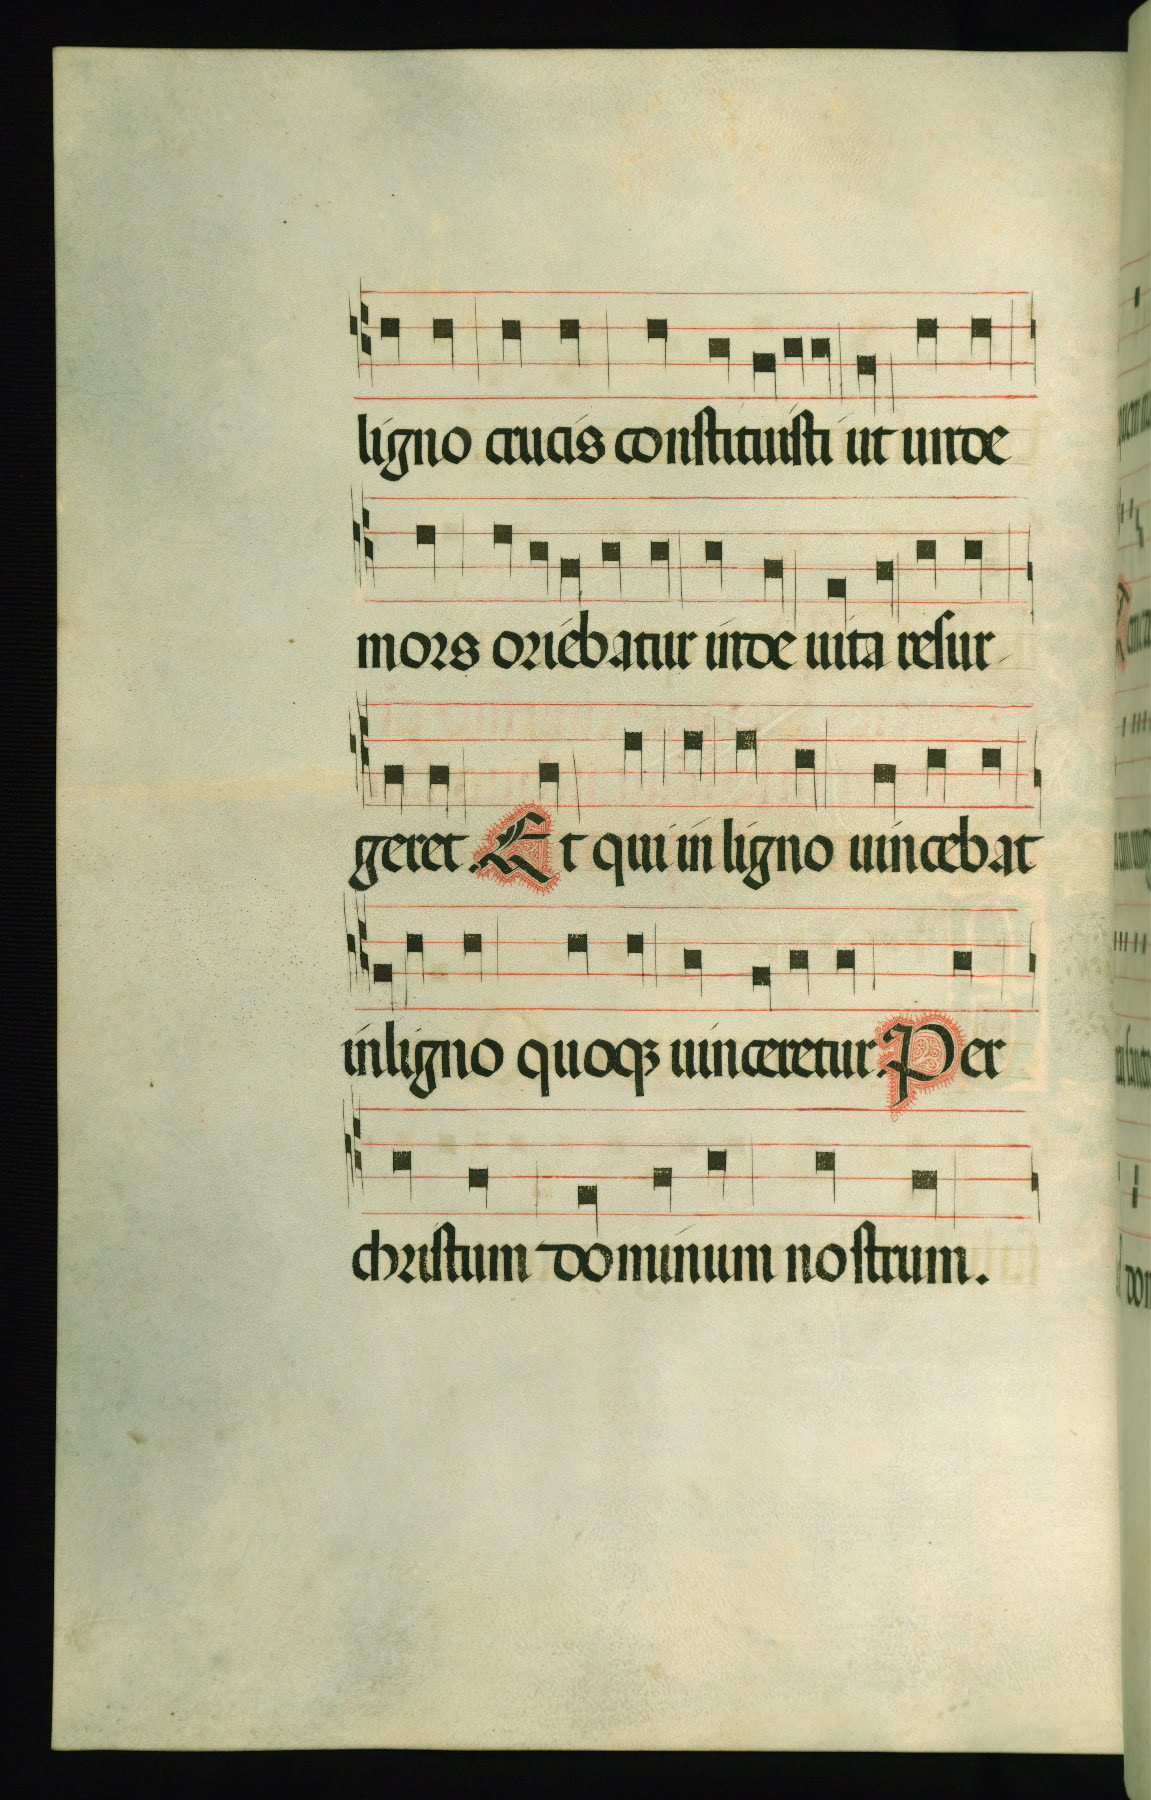 ligno crucis constituisti ut unde
mors oriebatur inde uita resur
geret. Et qui in ligno uincebat
in ligno quoqꝫ uinceretur. Per
christum dominum nostrum.